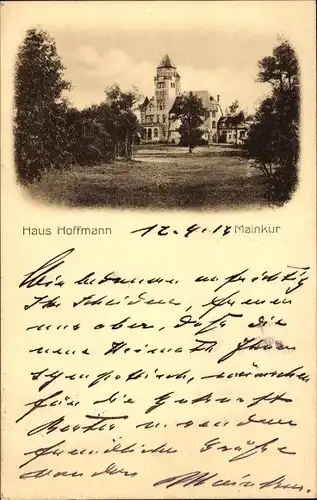 Haus Hoffmann
12.4.14
Mainkur
Wir bedauern aufrichtig
Ihr Scheiden, freuen
uns aber, daß die
neue Heimath Ihnen
sympathisch, wünschen
für die Zukunft
Bestes u. senden
freundliche Grüße
von der Mainkur.